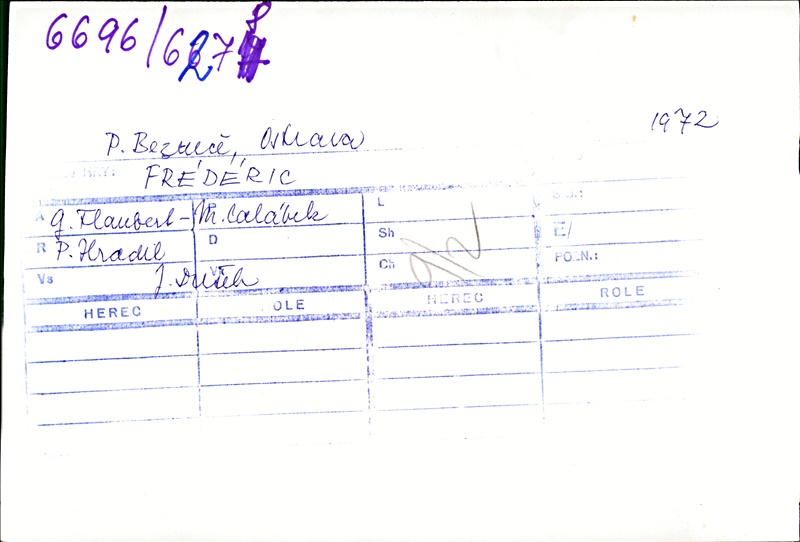 6696/6278
1972
P. Bezruče, Ostrava
FRÉDÉRIC
L
A G. Flaubert - M. Calábek
R P. Hradil
D
Sh
E/
Vs J. Dušek
Ch
9/2
POZN.:
HEREC ROLE HEREC ROLE